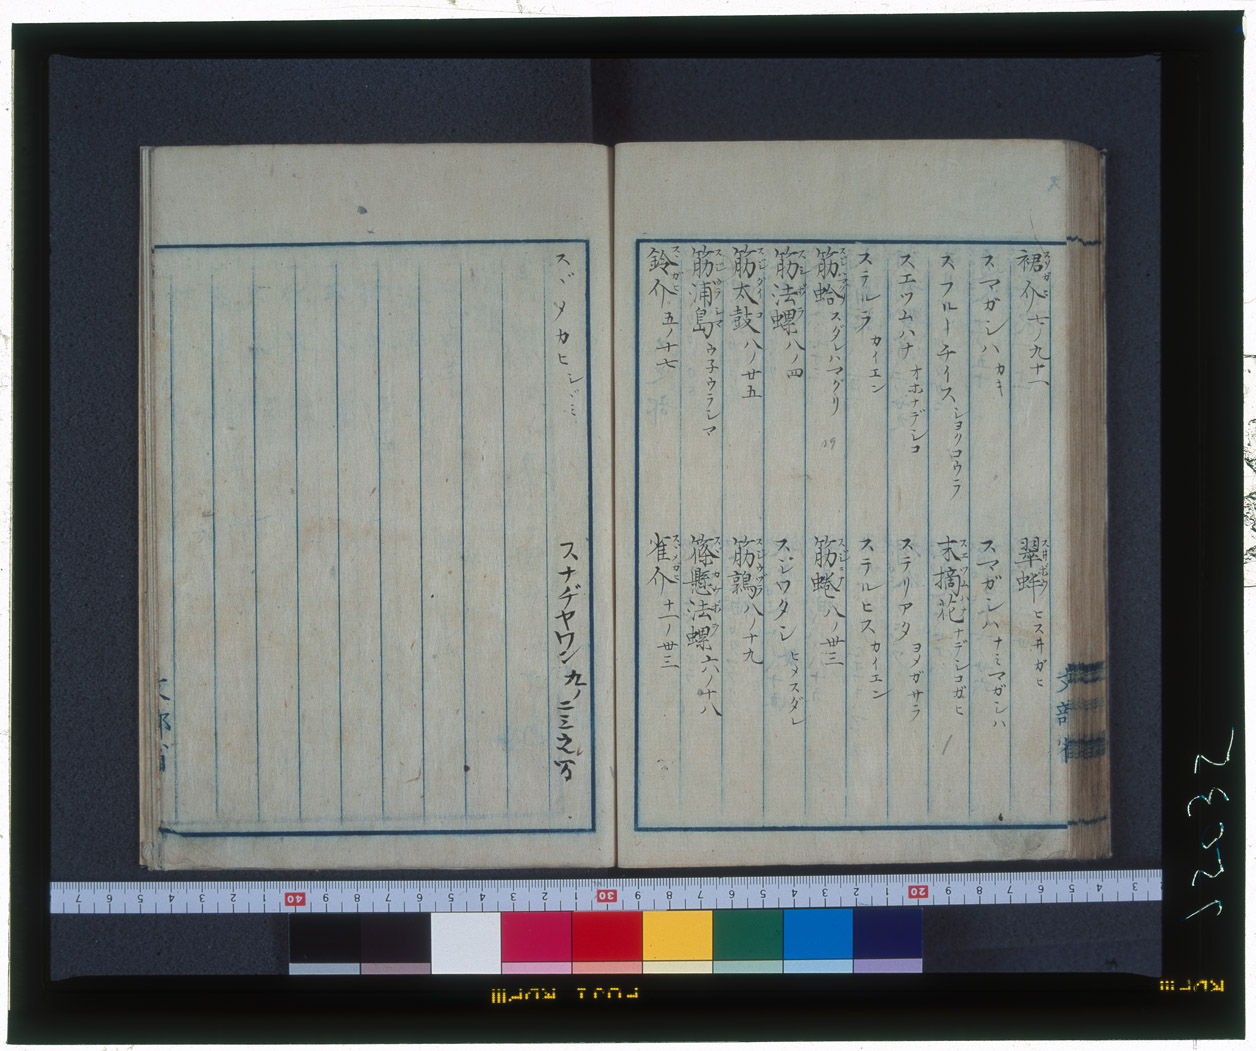 裙介 七ノ九十一
スマガシハ カキ
スフルーチイス ショクコウラ
スエツムハナ オホナデシコ
ステルラ カイエン
筋蛤 スダレハマグリ
筋法螺 八ノ四
筋太鼓 八ノ廿五
筋浦島 ウ子ウラシマ
鈴介 五ノ十七
翠蚌 ヒスヰガヒ
スマガシハ ナミマガシハ
末摘花 ナデシコガヒ
ステリアタ ヨメガサラ
ステルヒス カイエン
筋蜷 八ノ卅三
スヾシワタシ ヒメスダレ
筋鶉 八ノ十九
篠懸法螺 六ノ十八
雀介 十一ノ卅三
スヾメカヒ シヾミ
スナヂヤワン 九ノ二三
文部省
文部省
40 30 20